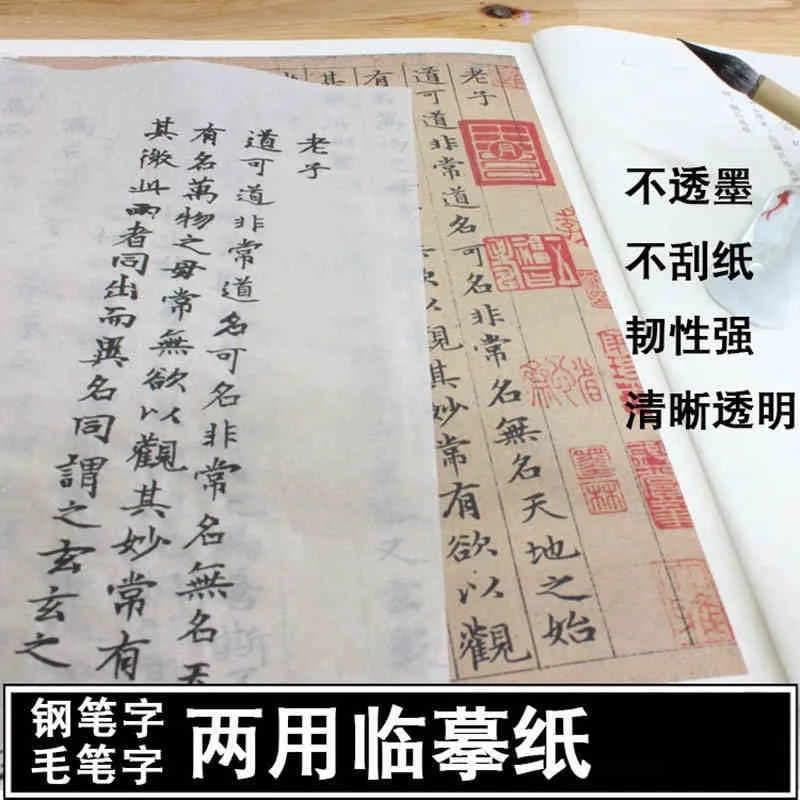 老子
道可道非常道名可名非常名無名天地之始
有
欲以觀其妙常有欲以觀
其
老子
道可道非常道名可名非常名無名天
有名萬物之母常無欲以觀其妙常有
其徼此兩者同出而異名同謂之玄玄之
墨林
不透墨
不刮纸
韧性强
清晰透明
钢笔字
毛笔字
两用临摹纸